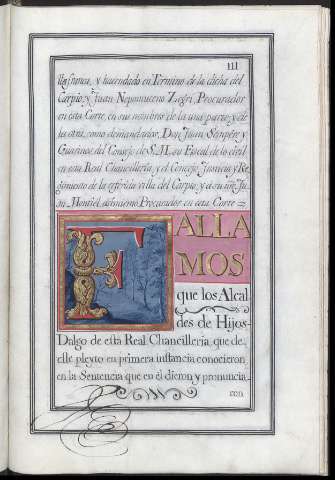 III
y hacendado en Termino de la dicha del
Carpio, y Juan Nepomuceno Zegri, Procurador
en esta Corte, en sus nombres de la una parte, y de
la otra, como demandador, Don Juan Sempere, y
Guarinos del Consejo de S.M. su Fiscal de lo civil
en esta Real Chancilleria, y el Concejo, Justicia, y Re
gimiento de la referida villa del Carpio, y en su nre Ju
an Montiel, asimismo Procurador en esta Corte =
FALLA
MOS
que los Alcal
des de Hijos-
Dalgo de esta Real Chancilleria, que de
este pleyto en primera instancia conocieron
en la Sentencia que en el dieron, y pronuncia-
ron